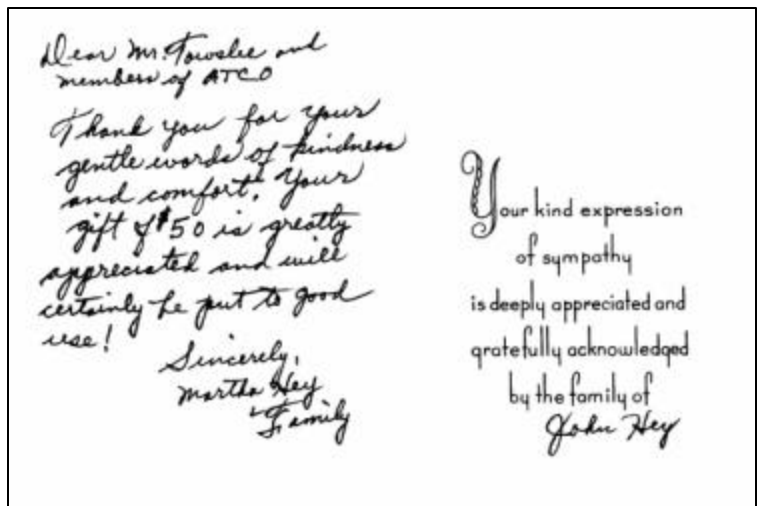 Dear Mr. Towslee and
members of ATCO
Thank you for your
gentle words of kindness
and comfort. Your
gift of $50 is greatly
appreciated and will
certainly be put to good
use!
Sincerely,
Martha Hey
+ Family
Your kind expression
of sympathy
is deeply appreciated and
gratefully acknowledged
by the family of
John Hey